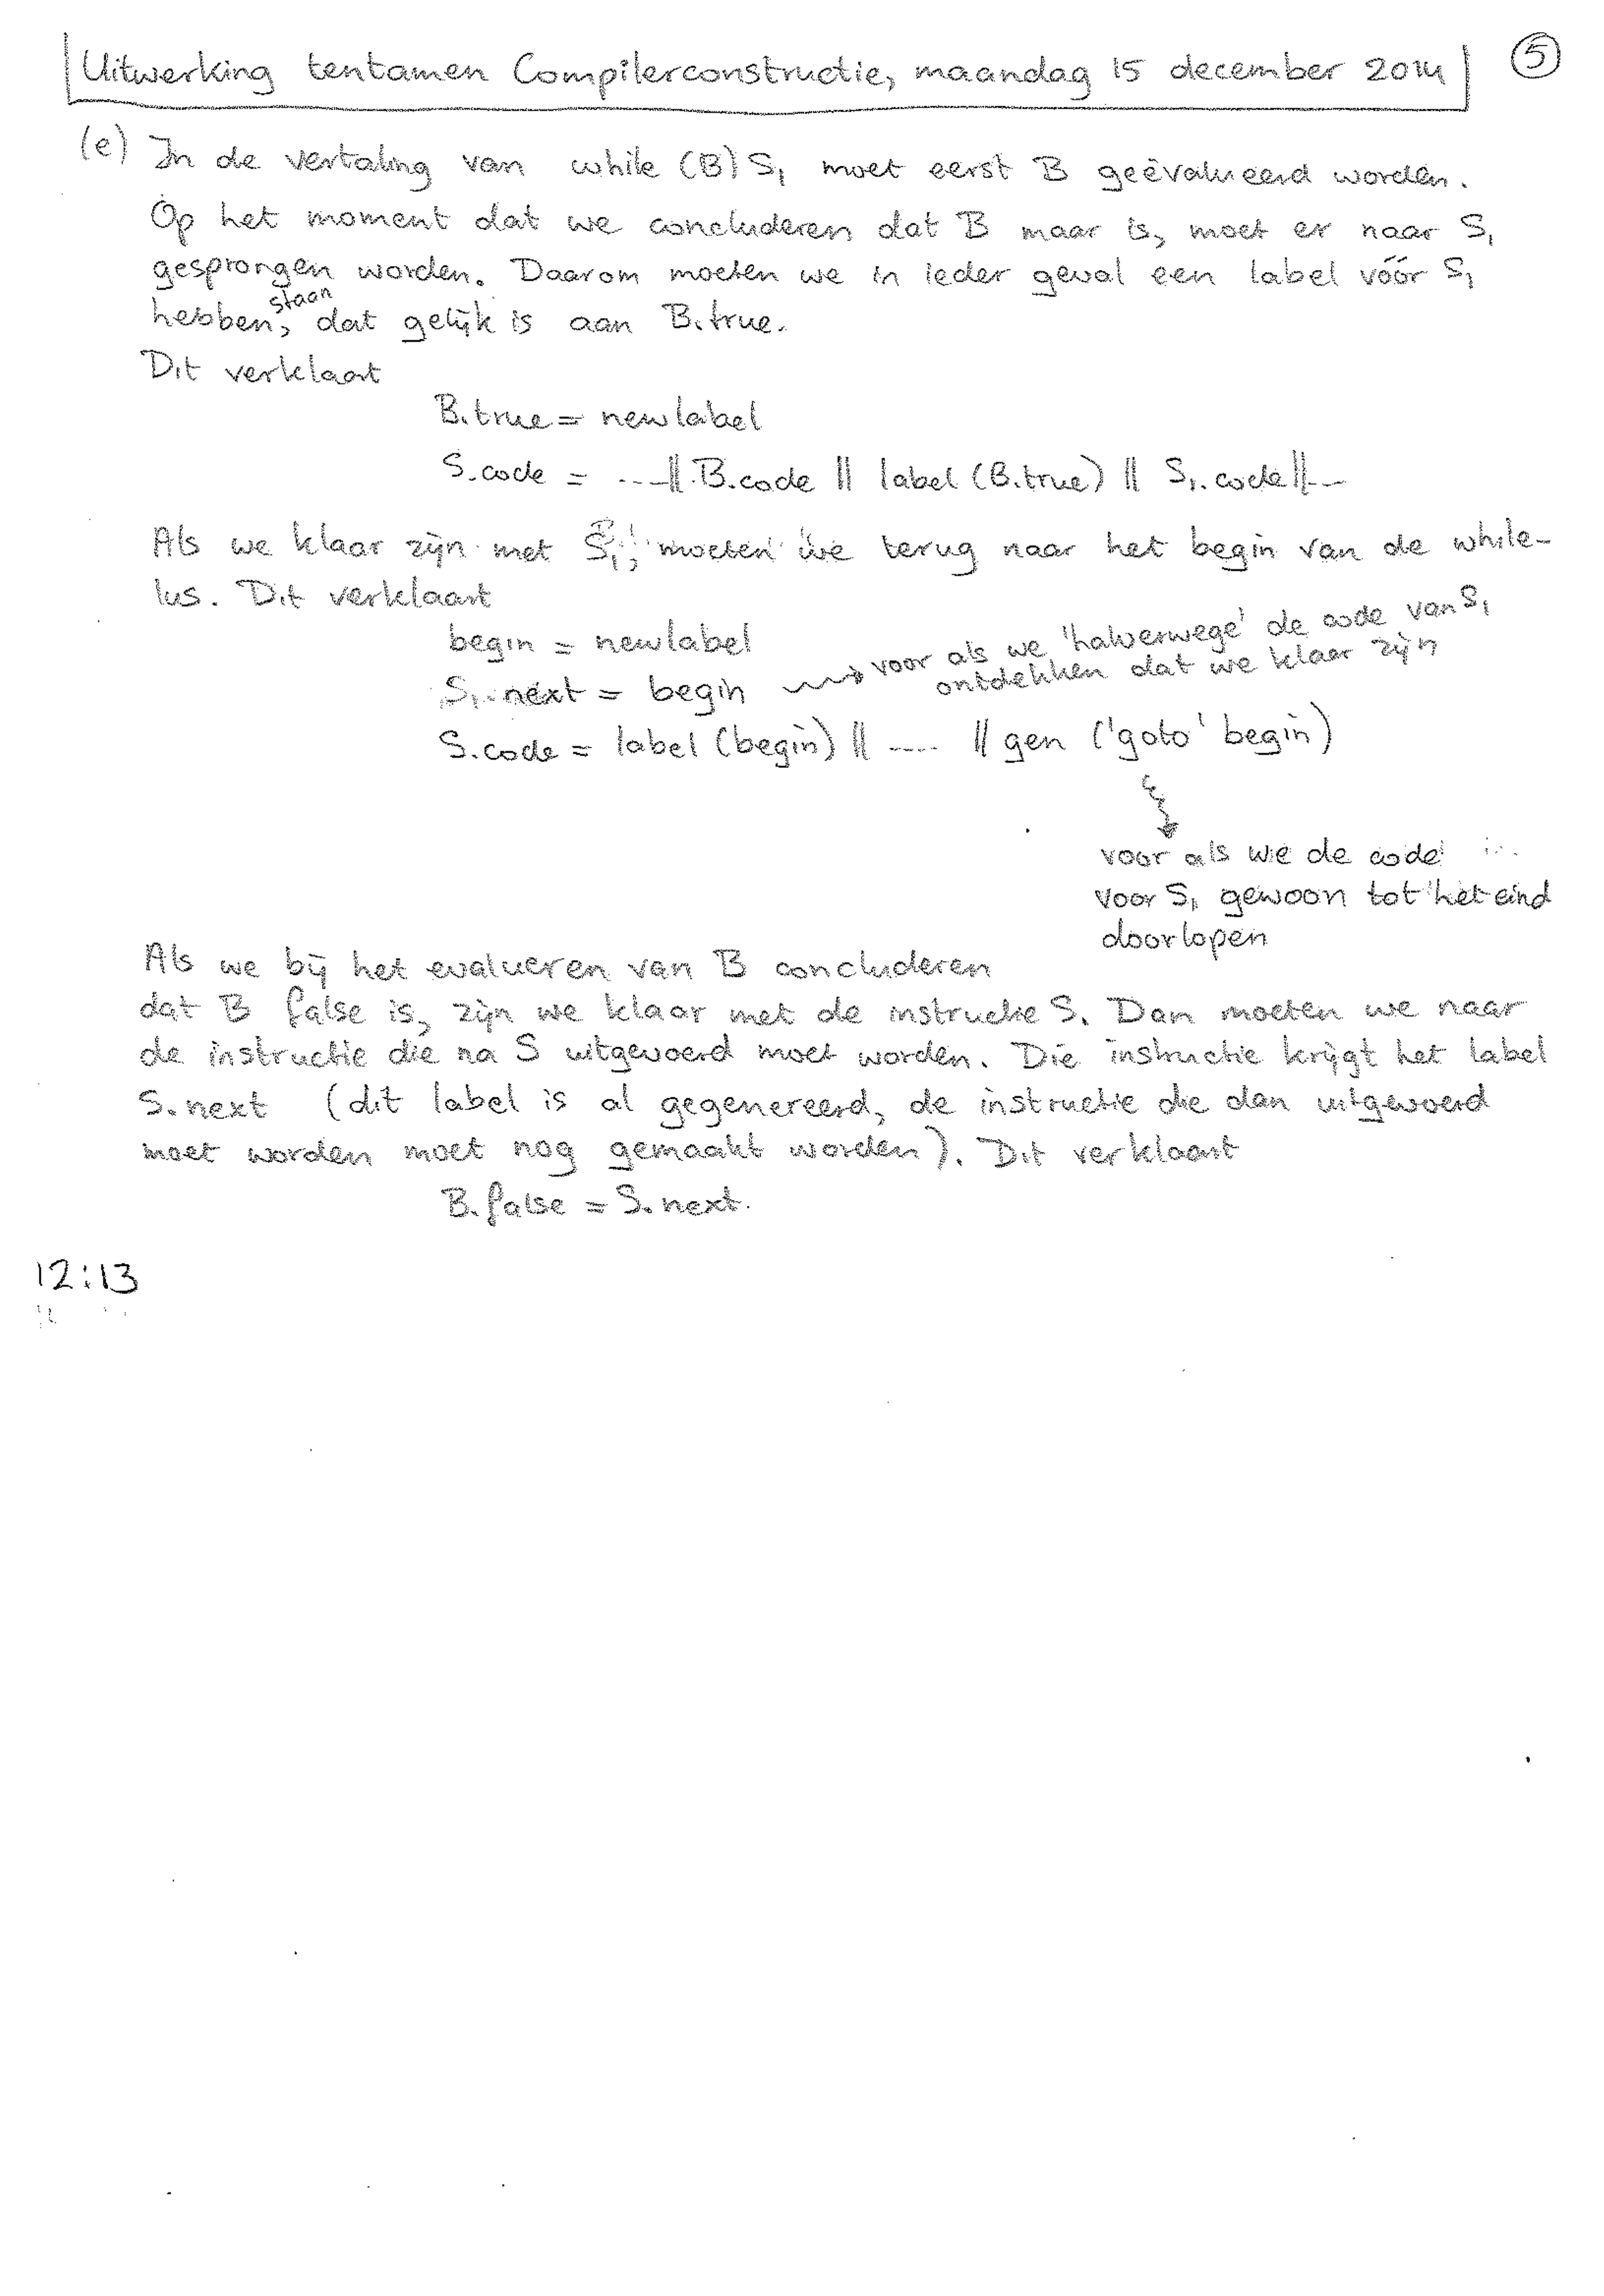 Uitwerking tentamen Compilerconstructie, maandag 15 december 2014
5
(e) In de vertaling van while (B) S₁ moet eerst B geëvalueerd worden.
Op het moment dat we concluderen dat B maar is, moet er naar S₁
gesprongen worden. Daarom moeten we in ieder geval een label vóór S₁
hebben, staan dat gelijk is aan B.true.
Dit verklaart
B.true = newlabel
S.code = ....|| B.code || label (B.true) || S₁.code ||...
Als we klaar zijn met S₁, moeten we terug naar het begin van de while-
lus. Dit verklaart
begin = newlabel
S₁.next = begin → voor als we 'halverwege' de code van S₁
ontdekken dat we klaar zijn
S.code = label (begin) || .... || gen ('goto' begin)
voor als we de code
voor S₁ gewoon tot het eind
doorlopen
Als we bij het evalueren van B concluderen
dat B false is, zijn we klaar met de instructie S. Dan moeten we naar
de instructie die na S uitgevoerd moet worden. Die instructie krijgt het label
S.next (dit label is al gegenereerd, de instructie die dan uitgevoerd
moet worden moet nog gemaakt worden). Dit verklaart
B.false = S.next.
12:13